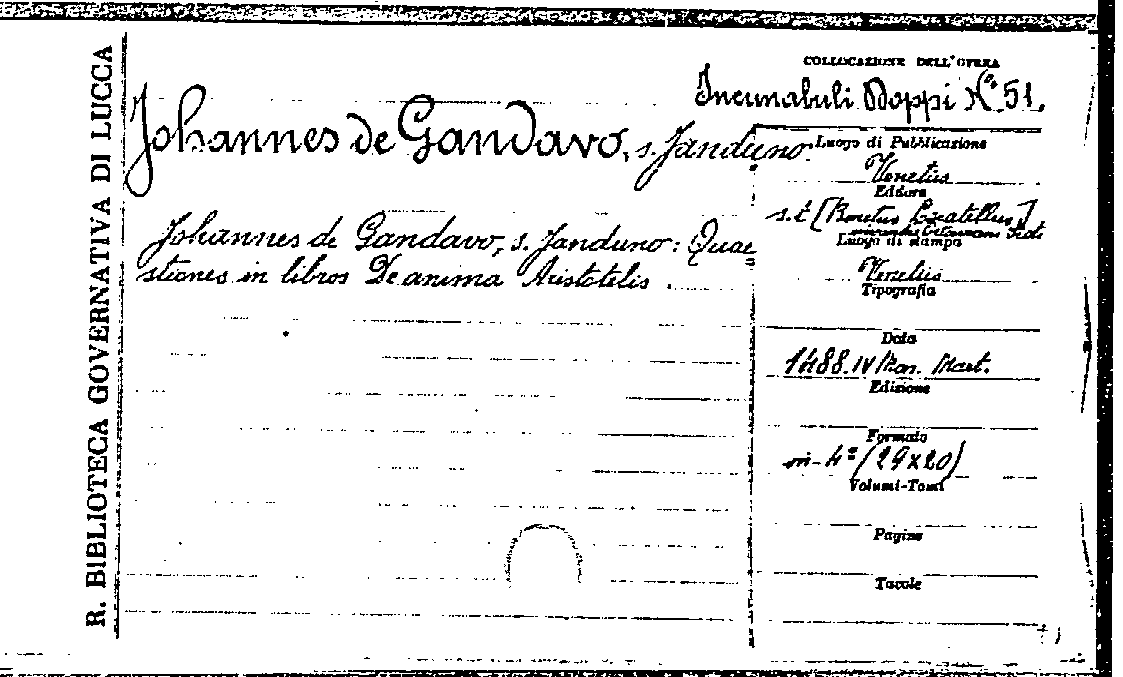 R. BIBLIOTECA GOVERNATIVA DI LUCCA
COLLOCAZIONE DELL'OPERA
Incunabuli Doppi N.° 51.
Johannes de Gandavo, s. Janduno.
Johannes de Gandavo, s. Janduno: Quae
stiones in libros De anima Aristotelis.
Luogo di Pubblicazione
Venetiis
Editore
s.t. [Bonetus Locatellus,]
Luogo di stampa
Venetiis
Tipografia
Data
1488. IV Non. Mart.
Edizione
Formato
in-4° (29x20)
Volumi-Tomi
Pagine
Tavole